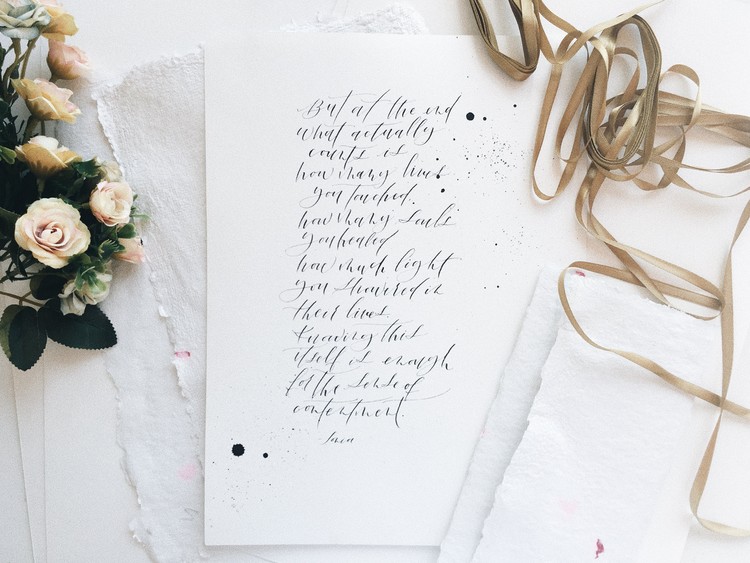 But at the end
what actually
counts is
how many lives
you touched.
how many souls
you healed
how much light
you showered in
their lives.
Knowing this
itself is enough
for the sense of
contentment.